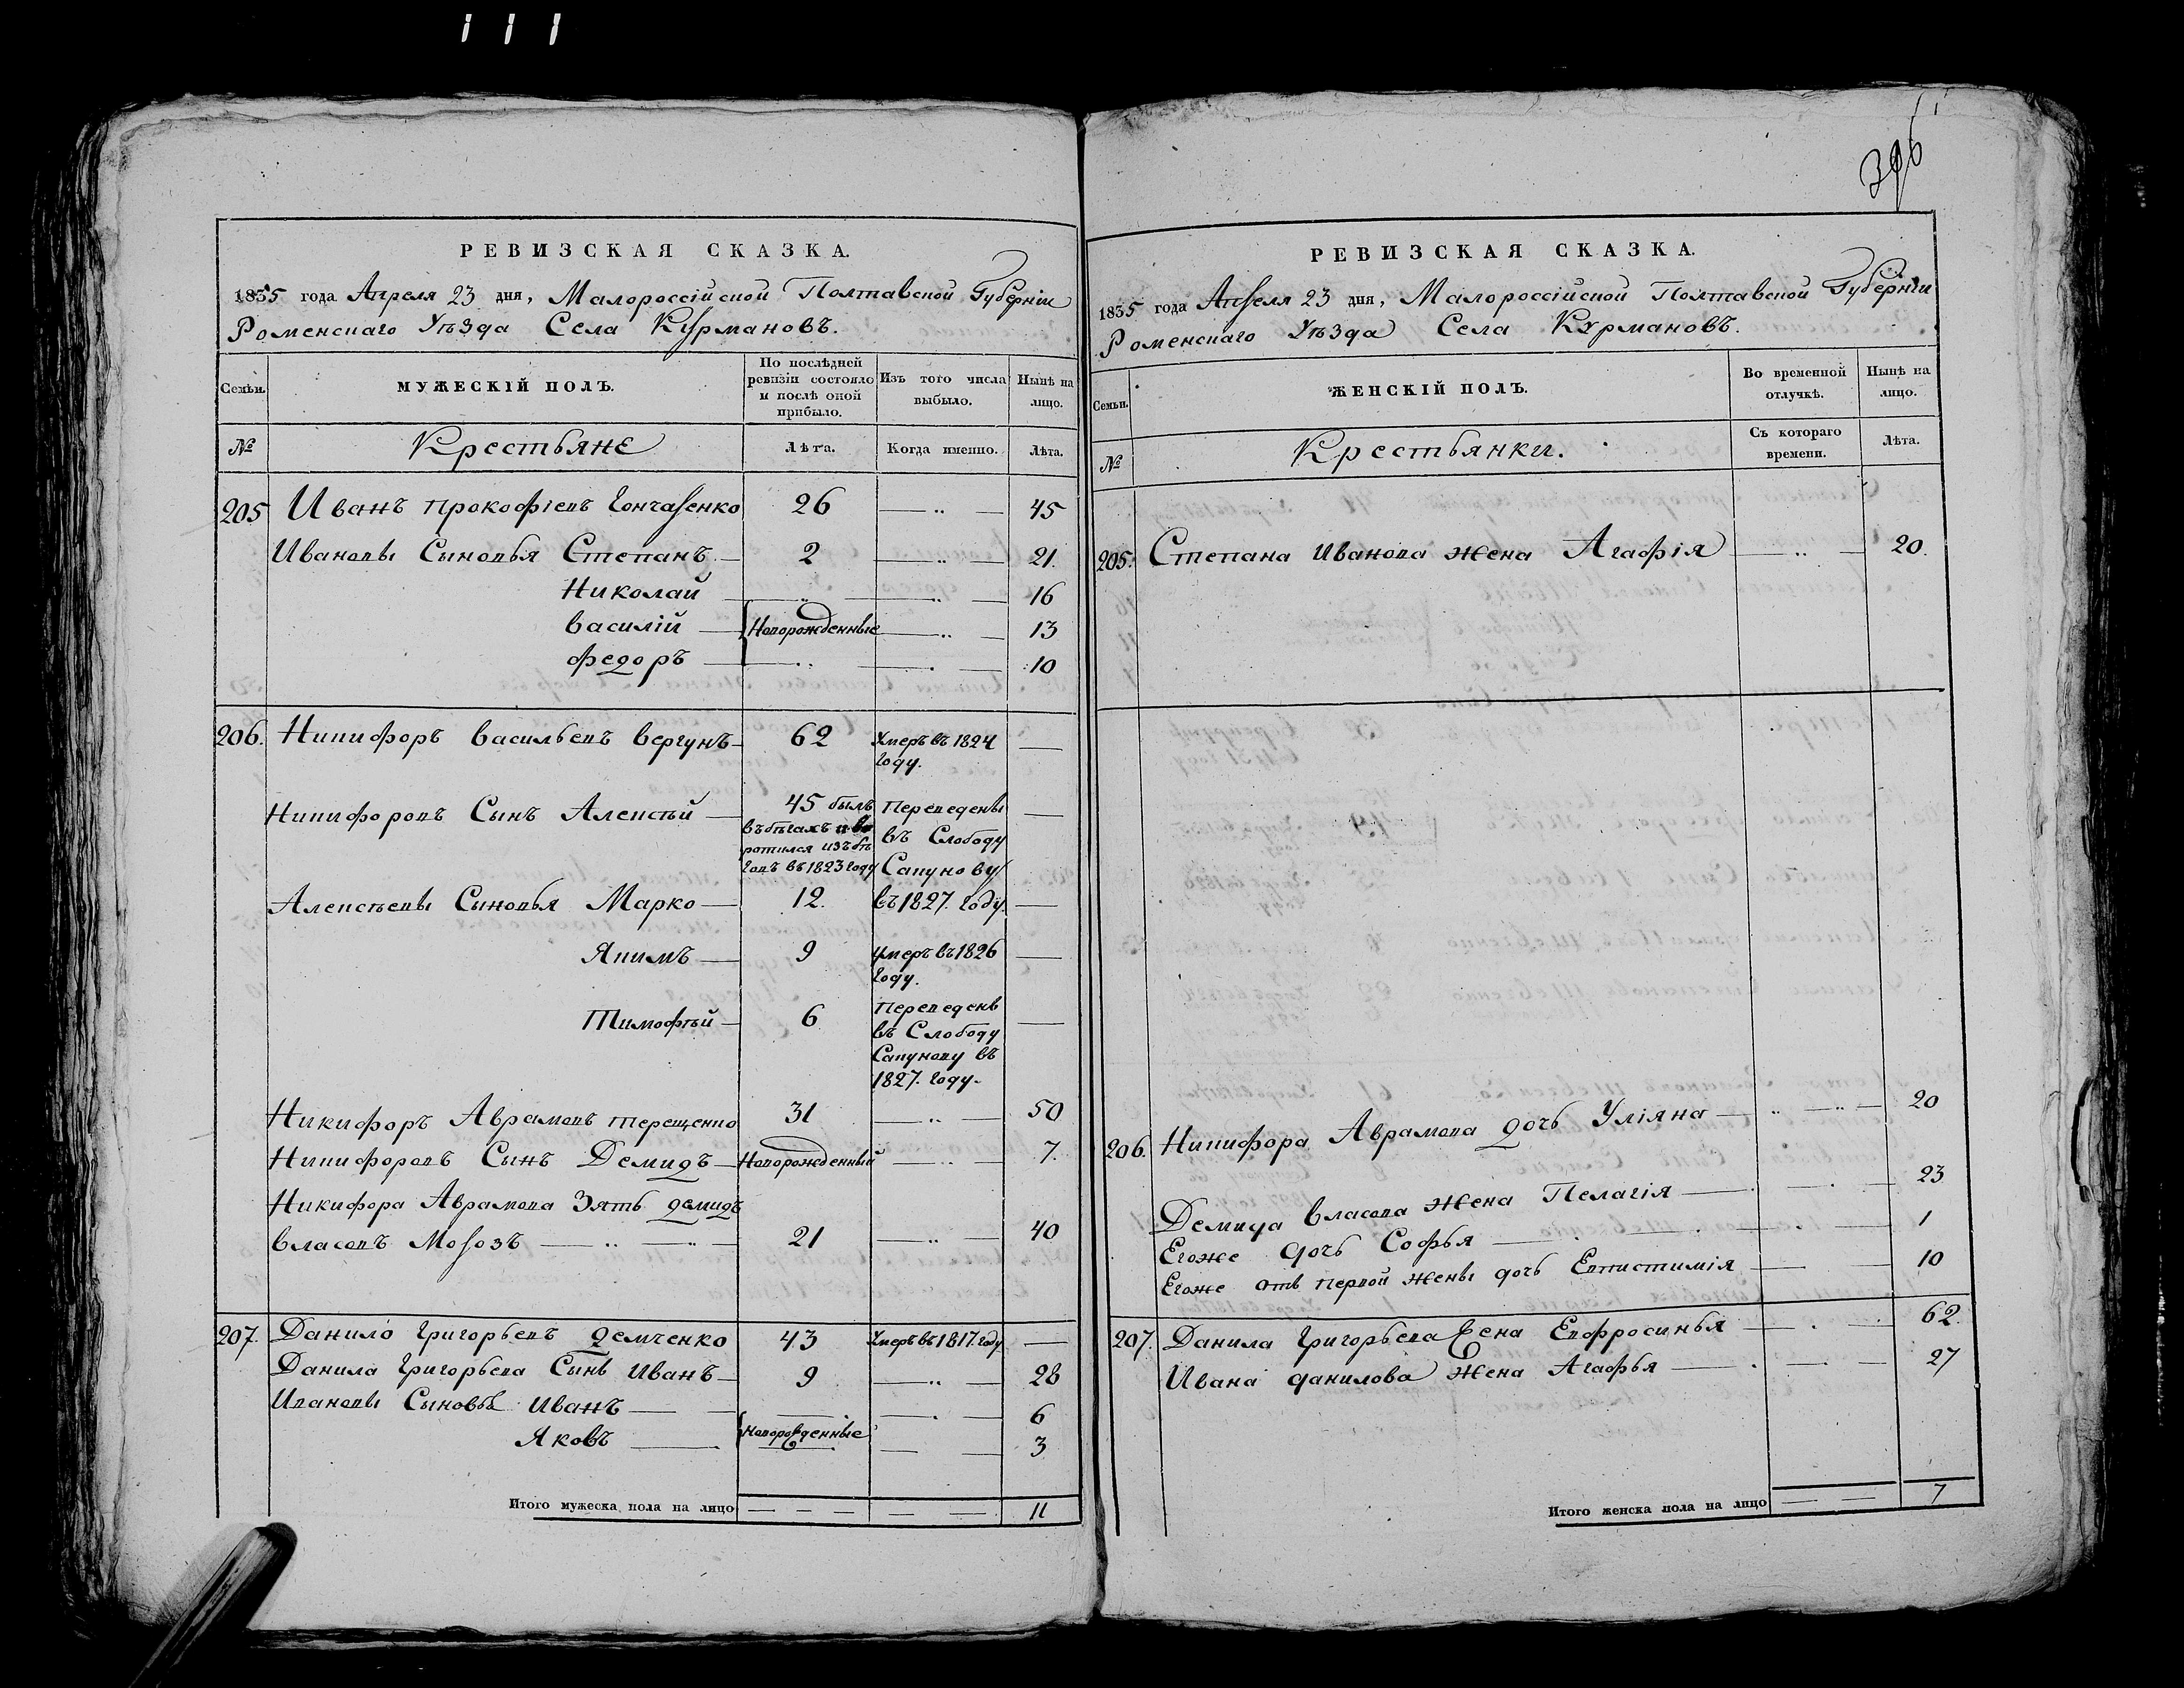 396
РЕВИЗСКАЯ СКАЗКА.
1835 года Апреля 23 дня, Малороссійской Полтавской Губерніи
Роменскаго Уѣзда Села Курмановъ.
Семьи. МУЖЕСКІЙ ПОЛЪ. По послѣдней ревизіи состояло и послѣ оной прибыло. Изъ того числа выбыло. Нынѣ на лицо.
№ Крестьяне Лѣта. Когда именно. Лѣта.
205 Иванъ Прокофіевъ Гончаренко 26 — „ — 45
Ивановы Сыновья Степанъ — 2 — „ — 21.
Николай — „ — „ — 16
Василій — Новорожденные — „ — 13
Федоръ — „ — „ — 10
206. Никифоръ Васильевъ Вергунъ — 62 Умеръ въ 1824 году. —
Никифоровъ Сынъ Алексѣй — 45 былъ въ бѣгахъ и воротился изъ бѣговъ въ 1823 году Переведены въ Слободу Сапунову —
Алексѣевы Сыновья Марко — 12. въ 1827. году. —
Якимъ — 9 умеръ въ 1826 году. —
Тимофѣй — 6 Переведенъ въ Слободу Сапунову въ 1827. году. —
Никифоръ Аврамовъ Терещенко 31 — „ — 50
Никифоровъ Сынъ Демидъ — Новорожденный — „ — 7.
Никифора Аврамова Зять Демидъ
Власовъ Морозъ — „ — „ — 21 — „ — 40
207. Данило Григорьевъ Демченко 43 Умеръ въ 1817. году —
Данила Григорьева Сынъ Иванъ — 9 — „ — 28
Ивановы Сыновья Иванъ — — . — 6
Яковъ — Новорожденные — — 3
Итого мужеска пола на лицо — — — — — 11
РЕВИЗСКАЯ СКАЗКА.
1835 года Апреля 23 дня, Малороссійской Полтавской Губерніи
Роменскаго Уѣзда Села Курмановъ.
Семьи. ЖЕНСКІЙ ПОЛЪ. Во временной отлучкѣ. Нынѣ на лицо.
№ Крестьянки. Съ котораго времени. Лѣта.
205. Степана Иванова жена Агафія — „ — 20.
206. Никифора Аврамова дочь Уліяна — „ — „ — 20
Демида Власова жена Пелагія — . — . — 23
Егоже дочь Софья — . — . — 1
Егоже отъ первой жены дочь Евтистимія — — 10
207. Данила Григорьева жена Евфросинья — . — 62.
Ивана Данилова жена Агафья — . — 27
Итого женска пола на лицо — — 7